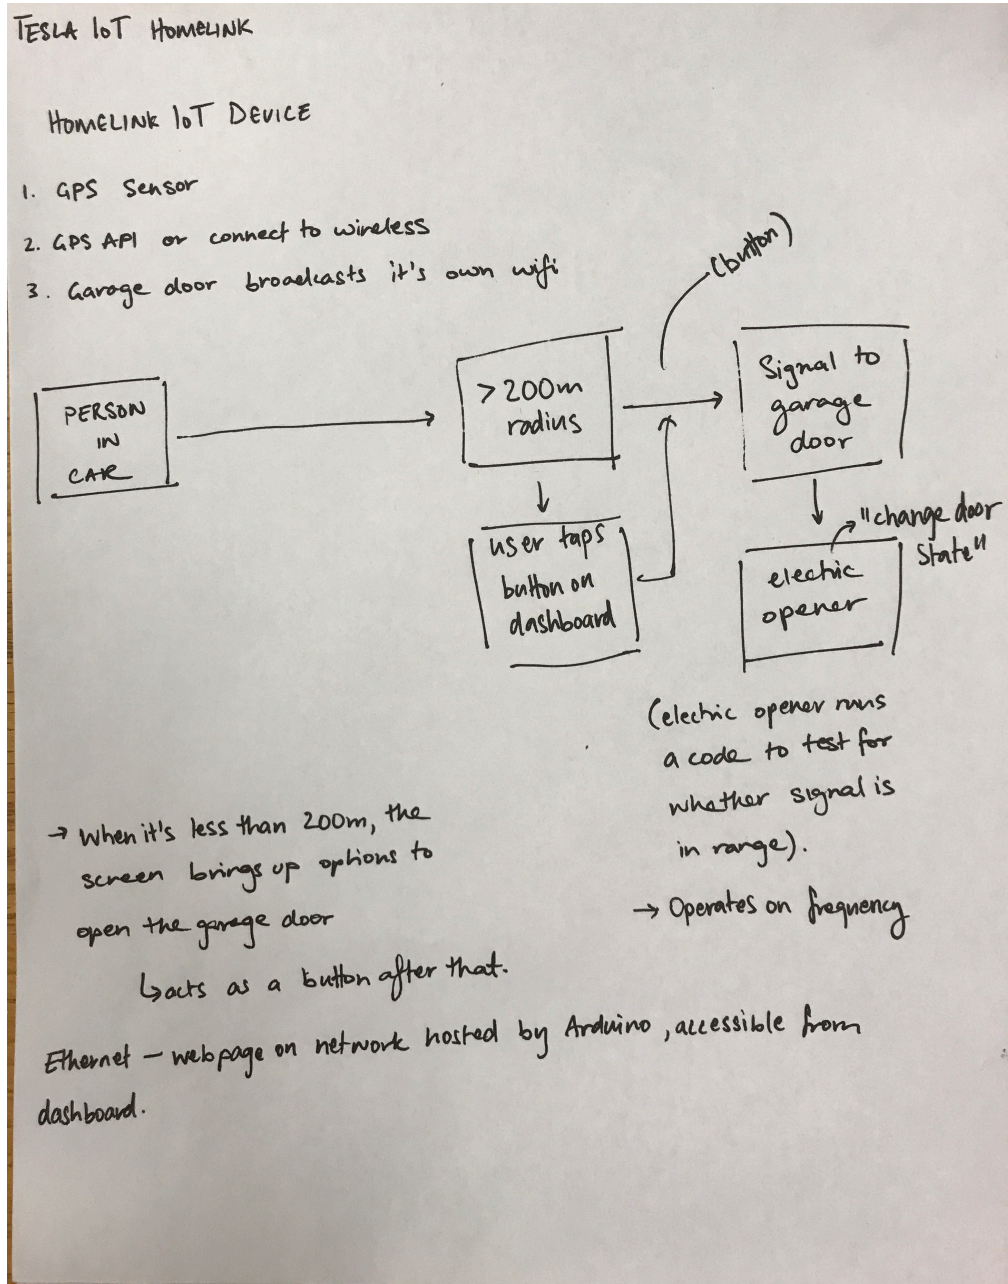 TESLA IoT HOMELINK
HOMELINK IoT DEVICE
1. GPS Sensor
2. GPS API or connect to wireless
3. Garage door broadcasts it's own wifi
(button)
PERSON
IN
CAR
>200m
radius
Signal to
garage
door
user taps
button on
dashboard
"change door
state"
electric
opener
(electric opener runs
a code to test for
whether signal is
in range).
→ Operates on frequency
→ When it's less than 200m, the
screen brings up options to
open the garage door
↳ acts as a button after that.
Ethernet – webpage on network hosted by Arduino, accessible from
dashboard.